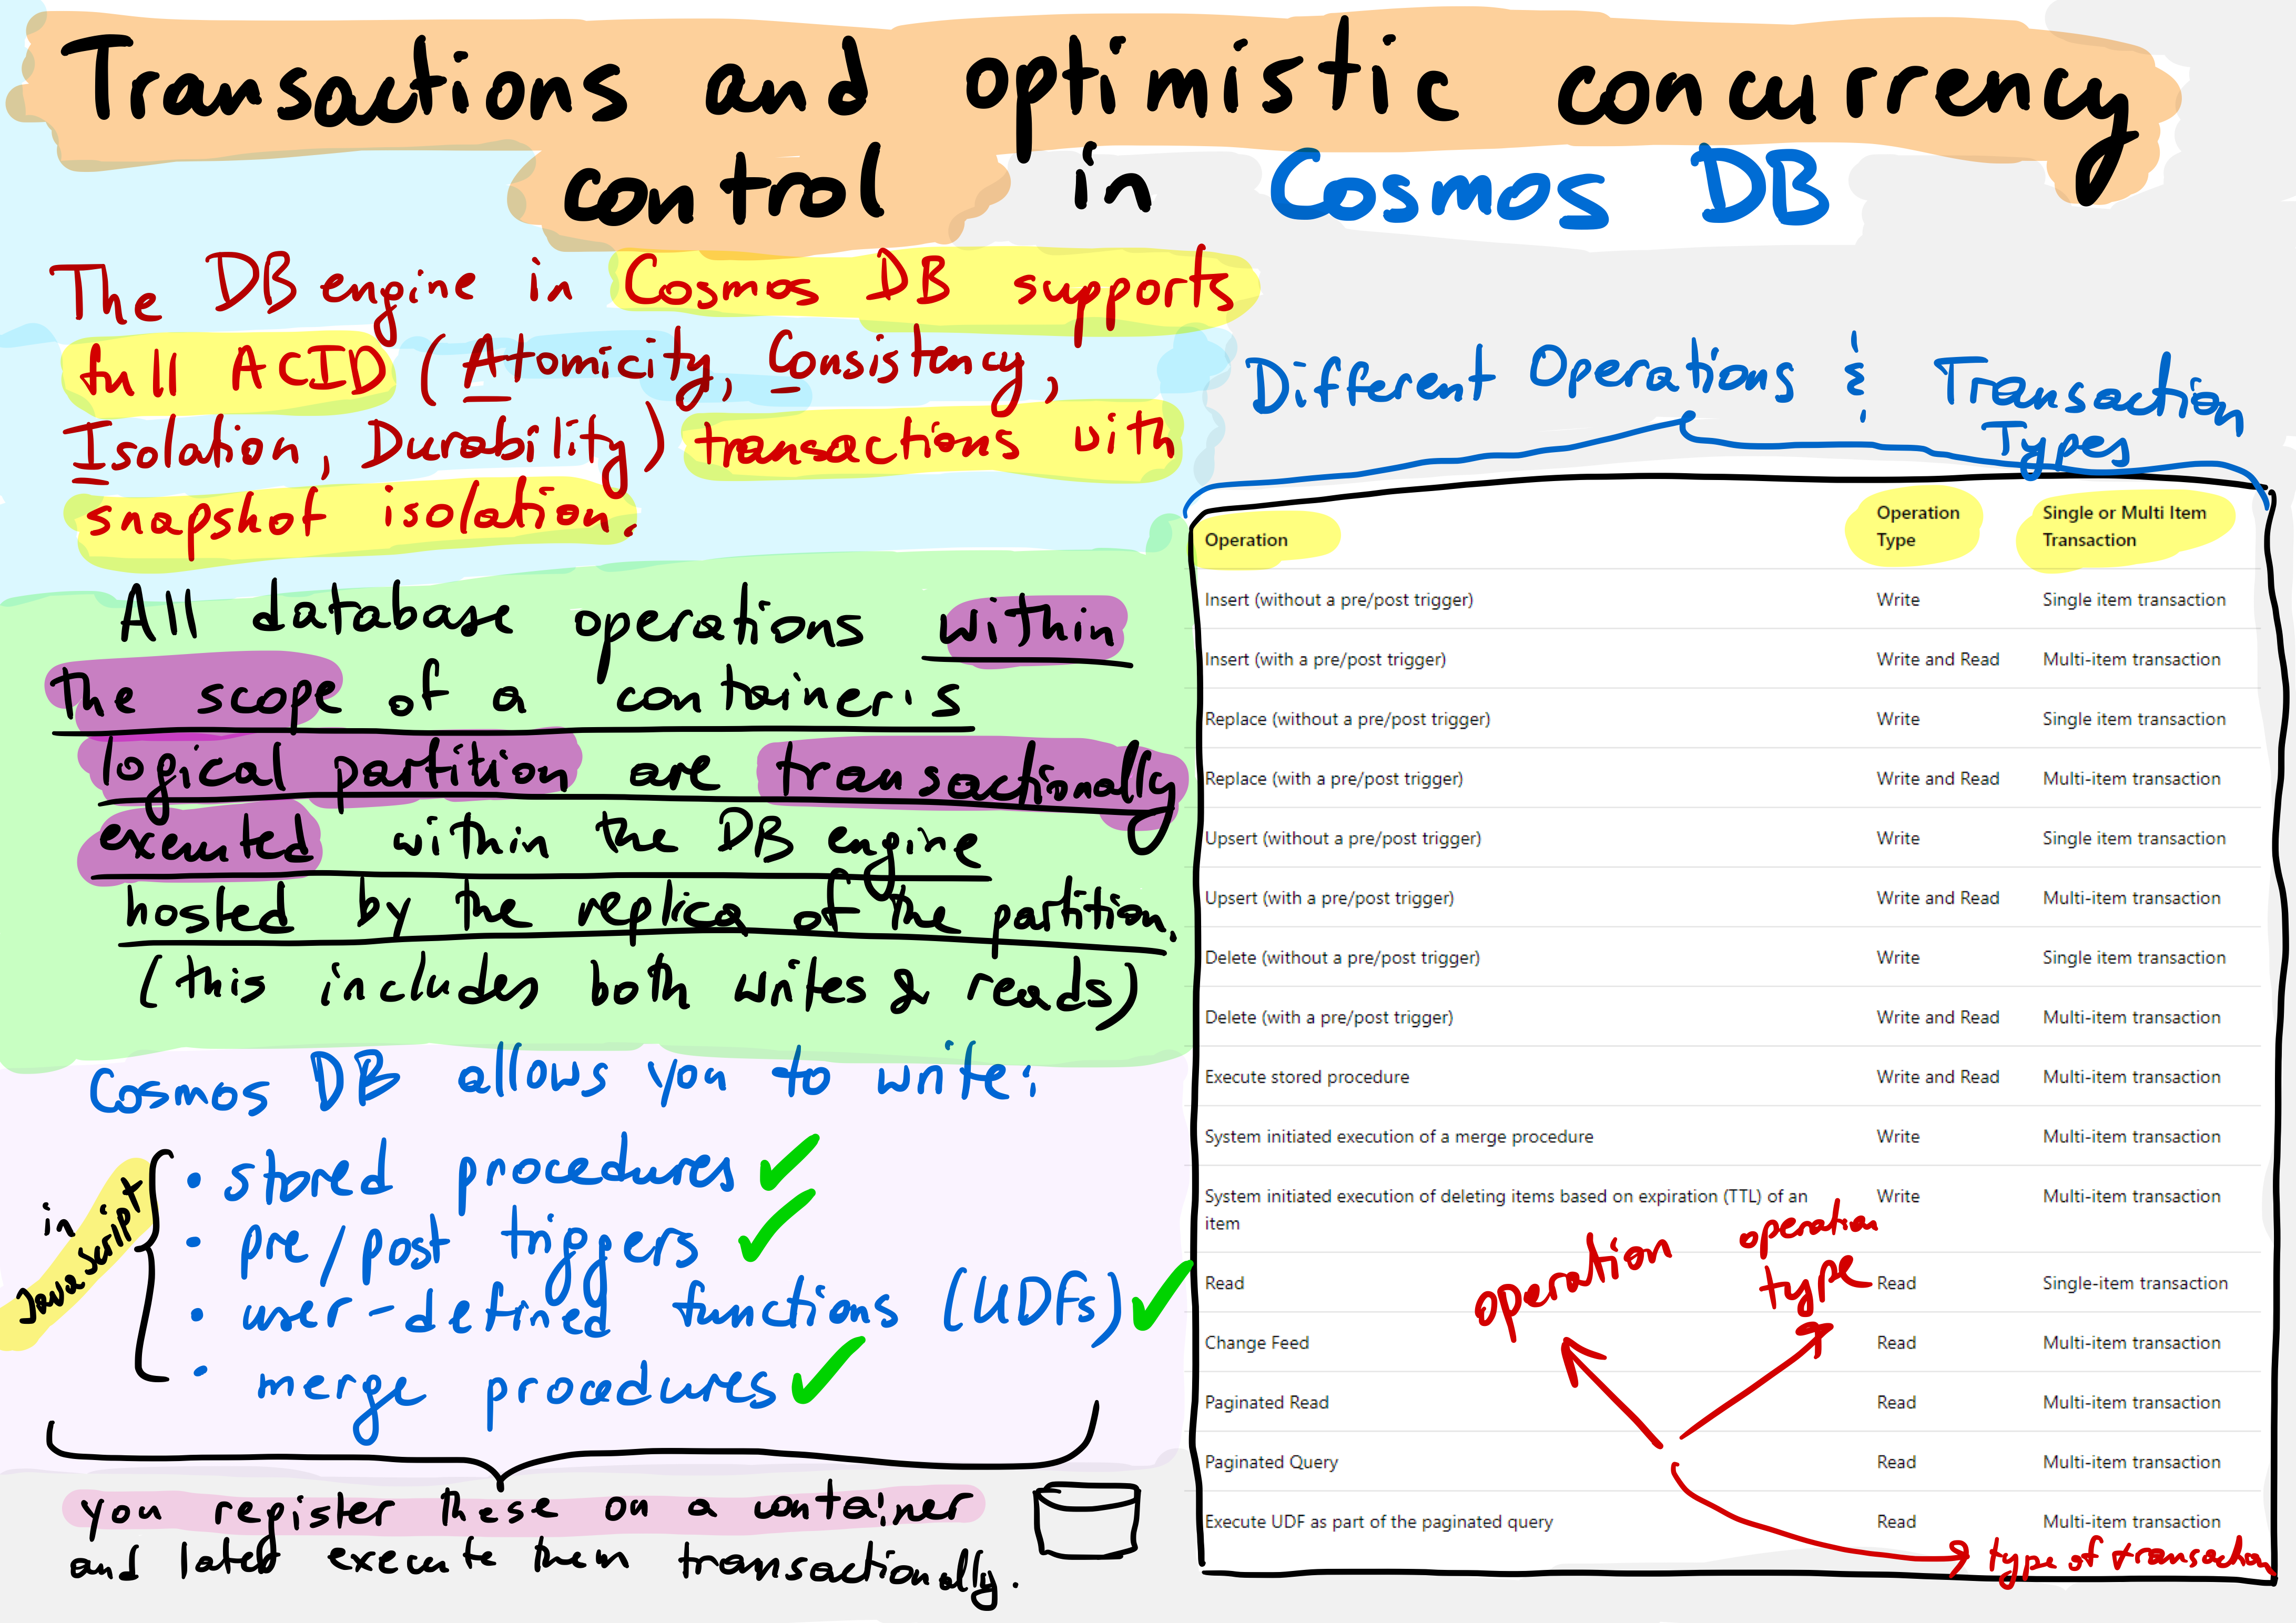 Transactions and optimistic concurrency
control in Cosmos DB
The DB engine in Cosmos DB supports
full ACID (Atomicity, Consistency,
Isolation, Durability) transactions with
snapshot isolation.
All database operations within
the scope of a container's
logical partition are transactionally
executed within the DB engine
hosted by the replica of the partition.
(this includes both writes & reads)
Cosmos DB allows you to write:
in
JavaScript
• stored procedures ✓
• pre/post triggers ✓
• user-defined functions (UDFs) ✓
• merge procedures ✓
you register these on a container
and later execute them transactionally.
Different Operations & Transaction
Types
Operation Operation Type Single or Multi Item Transaction
Insert (without a pre/post trigger) Write Single item transaction
Insert (with a pre/post trigger) Write and Read Multi-item transaction
Replace (without a pre/post trigger) Write Single item transaction
Replace (with a pre/post trigger) Write and Read Multi-item transaction
Upsert (without a pre/post trigger) Write Single item transaction
Upsert (with a pre/post trigger) Write and Read Multi-item transaction
Delete (without a pre/post trigger) Write Single item transaction
Delete (with a pre/post trigger) Write and Read Multi-item transaction
Execute stored procedure Write and Read Multi-item transaction
System initiated execution of a merge procedure Write Multi-item transaction
System initiated execution of deleting items based on expiration (TTL) of an Write Multi-item transaction
item
Read Read Single-item transaction
Change Feed Read Multi-item transaction
Paginated Read Read Multi-item transaction
Paginated Query Read Multi-item transaction
Execute UDF as part of the paginated query Read Multi-item transaction
operation
operation
type
type of transaction